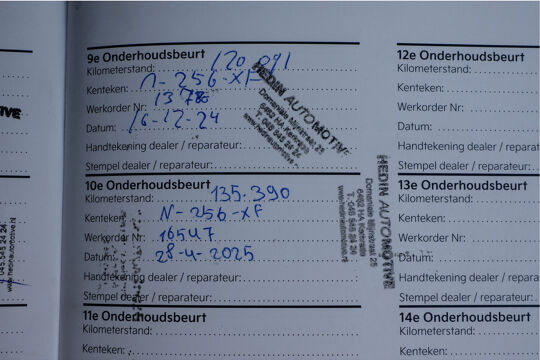 9e Onderhoudsbeurt
Kilometerstand: 120.091
Kenteken: N-256-XF
Werkorder Nr: 13 78
Datum: 16-12-24
Handtekening dealer / reparateur:
Stempel dealer / reparateur:
HEDIN AUTOMOTIVE
Domaniale Mijnstraat 25
6462 HA Kerkrade
T. 045 545 24 24
www.hedinautomotive.nl
10e Onderhoudsbeurt
Kilometerstand: 135.390
Kenteken: N-256-XF
Werkorder Nr: 16547
Datum: 28-4-2025
Handtekening dealer / reparateur:
Stempel dealer / reparateur:
HEDIN AUTOMOTIVE
Domaniale Mijnstraat 25
6462 HA Kerkrade
T. 045 545 24 24
www.hedinautomotive.nl
11e Onderhoudsbeurt
Kilometerstand:
Kenteken:
12e Onderhoudsbeurt
Kilometerstand:
Kenteken:
Werkorder Nr:
Datum:
Handtekening dealer / reparateur:
Stempel dealer / reparateur:
13e Onderhoudsbeurt
Kilometerstand:
Kenteken:
Werkorder Nr:
Datum:
Handtekening dealer / reparateur:
Stempel dealer / reparateur:
14e Onderhoudsbeurt
Kilometerstand:
Kenteken:
045 545 24 24
www.hedinautomotive.nl